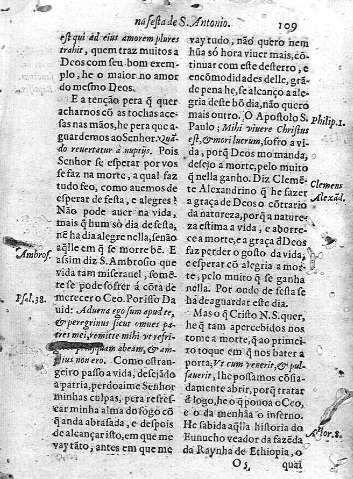 na festa de S. Antonio. 109
est qui ad eius amorem plures
trahit, quem traz muitos a
Deos com seu bom exem-
plo, he o maior no amor
do mesmo Deos.
E a tenção pera q̃ quer
acharnos cõ as tochas ace-
sas nas mãos, he pera que a-
guardemos ao Senhor: Quã-
do reuertatur à nuptijs. Pois
Senhor se esperar por vos
se faz na morte, a qual faz
tudo feo, como auemos de
esperar de festa, e alegres?
Não pode auer na vida,
mais q̃ hum só dia de festa,
nẽ ha dia alegre nella, senão
aq̃lle em q̃ se morre bẽ. E
assim diz S. Ambrosio que
vida tam miserauel, somẽ-
te se pode sofrer á cõta de
merecer o Ceo. Por isso Da
uid: Aduena ego sum apud te,
& peregrinus sicut omnes pa-
tres mei, remitte mihi vt refri-
abeam, & am-
plius non ero. Como estran-
geiro passo a vida, desejãdo
a patria, perdoaime Senhor
minhas culpas, pera refres-
car minha alma do fogo cõ
q̃ anda abrasada, e despois
de alcançar isto, em que me
vay tãto, antes em que me
Ambros.
Psal. 38.
vay tudo, não quero nem
hũa só hora viuer mais, cõ-
tinuar com este desterro, e
encõmodidades delle, grã-
de pena he, se alcanço a ale-
gria deste bõ dia, não quero
mais outro. O Apostolo S.
Paulo: Mihi viuere Christus
est, & mori lucrum, sofro a vi-
da, porq̃ Deos mo manda,
desejo a morte, pelo muito
q̃ nella ganho. Diz Clemẽ-
te Alexandrino q̃ he fazer
a graça de Deos o cõtrario
da natureza, porq̃ a nature-
za estima a vida, e aborre-
ce a morte, e a graça d̃ Deos
faz perder o gosto da vida,
e esperar cõ alegria a mor-
te, pelo muito q̃ se ganha
nella. Por onde de festa se
ha de aguardar este dia.
Mas o q̃ Cristo N. S. quer,
he q̃ tam apercebidos nos
tome a morte, q̃ ao primei-
ro toque em q̃ nos bater a
porta, Vt cum venerit, & pul-
sauerit, lhe possamos cõfia-
damente abrir, porq̃ tratar
d̃ logo, he o q̃ pouoa o Ceo,
e o da menhãa o inferno.
He sabida aq̃lla historia do
Eunucho veador da fazẽda
da Raynha de Ethiopia, o
Philip. 1.
Clemens
Alexãd.
Actor. 8.
O 5 qual